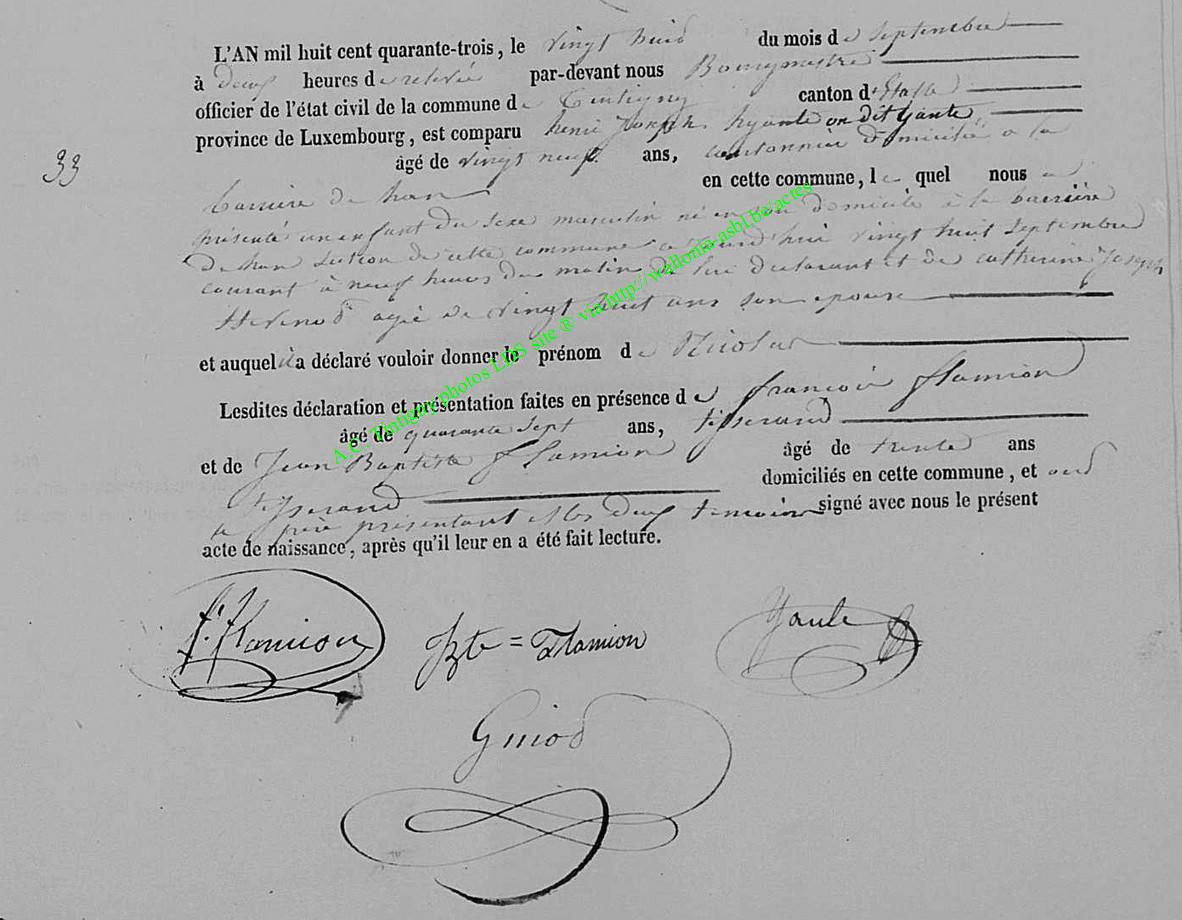 L'AN mil huit cent quarante-trois, le vingt huit du mois de septembre
à deux heures de relevée par-devant nous Bourgmestre
officier de l'état civil de la commune de Tintigny canton d'Etalle
province de Luxembourg, est comparu henri Joseph hyante ou dit Yante,
33
âgé de vingt neuf ans, cantonnier domicilié a la
barriere de han en cette commune, le quel nous a
présenté un enfant du sexe masculin né en son domicile à la barrière
de han section de cette commune cejourd'hui vingt huit septembre
courant à neuf heures du matin de lui declarant et de catherine Joseph
agée de vingt huit ans son epouse
et auquel il a déclaré vouloir donner le prénom de Nicolas
Lesdites déclaration et présentation faites en présence de françois flamion
âgé de quarante sept ans, tisserand
et de Jean Baptiste flamion âgé de trente ans
tisserand domiciliés en cette commune, et ont
le père présentant et les deux temoins signé avec nous le présent
acte de naissance, après qu'il leur en a été fait lecture.
f. flamion Jbte = Flamion Yante
Giniod
A.E. Tintigny photos LDS site ® via http://wallonia-asbl.be/actes